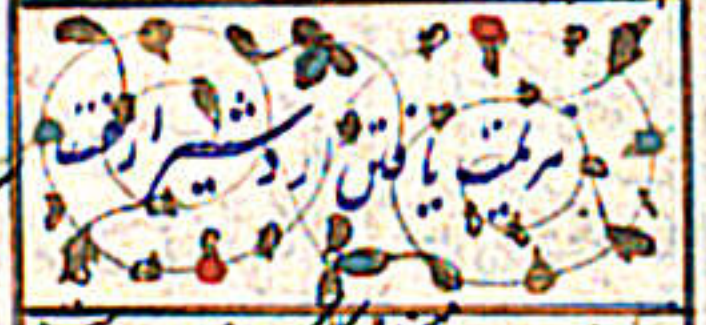 هزیمت یافتن اردشیر از هفت